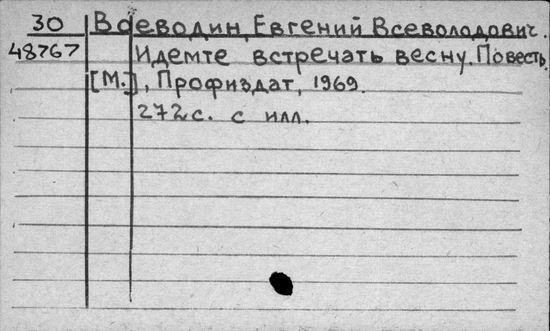 30 Воеводин, Евгений Всеволодович.
48767 Идемте встречать весну. Повесть.
[М.], Профиздат, 1969.
272 с. с илл.